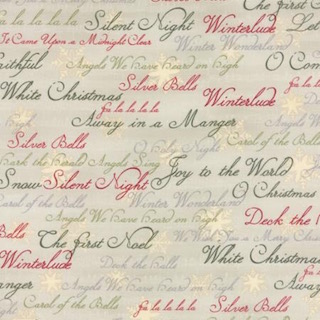 The First
la la la la la Silent Night Winterlude Let
It Came Upon a Midnight Clear Winter Wonderland
aithful Angels We Have Heard on High O Com
Silver Bells
White Christmas fa la la la la Winterlude
Away in a Manger
Silver Bells O Holy Night Carol of the Bells
Hark the Herald Angels Sing Joy to the World
Snow Silent Night O Christmas
Winter Wonderland
Angels We Have Heard on High Deck the
Bells The First Noel We Wish You a Merry
Winterlude Deck the Halls White Christmas
ger Angels We Have Heard on High
Carol of the Bells fa la la la la Silver Bells